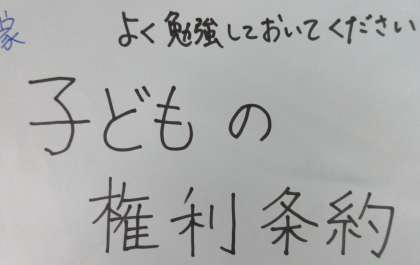 よく勉強しておいてください
子どもの
権利条約